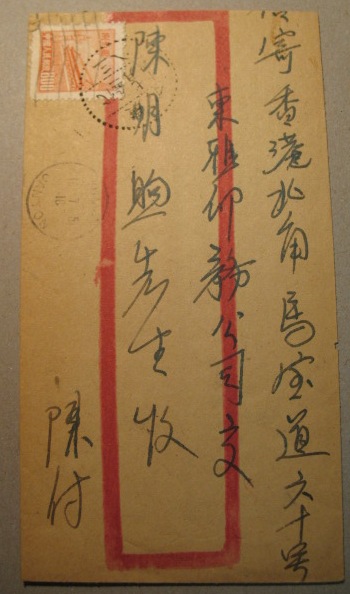 寄香港北角馬宝道六十号
東雅印務公司交
陳明煦先生收
陳付